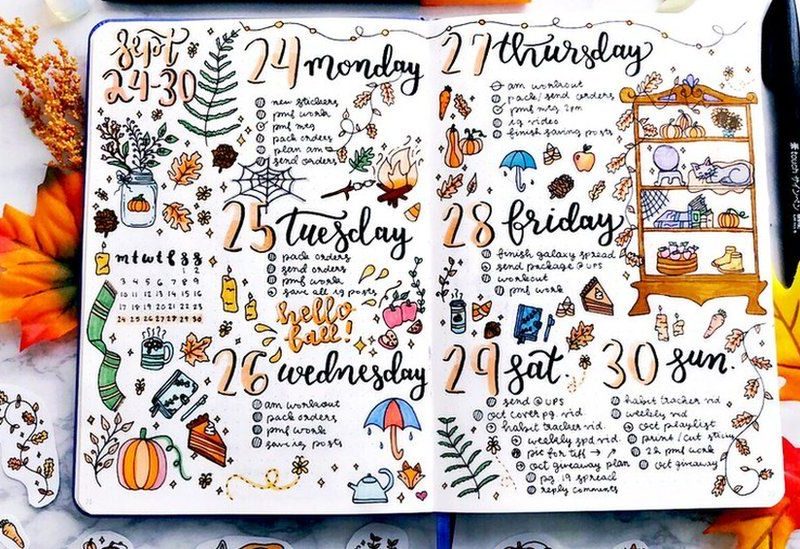 Sept
24-30
m t w t f s s
1 2
3 4 5 6 7 8 9
10 11 12 13 14 15 16
17 18 19 20 21 22 23
24 25 26 27 28 29 30
24 monday
new stickers
pmf work
pmf mtg
pack orders
plan am
send orders
25 tuesday
pack orders
send orders
pmf work
save all ig posts
hello
fall!
26 wednesday
am workout
pack orders
pmf work
save ig posts
27 thursday
am workout
pack/send orders
pmf mtg 2pm
ig video
finish saving posts
28 friday
finish galaxy spread
send package @ UPS
workout
pmf work
29 sat.
send @ UPS
oct cover pg. vid.
habit tracker vid.
weekly spd. vid.
pic for tiff → ↗
oct giveaway plan
pg. 19 spread
reply comments
30 sun.
habit tracker vid
weekly vid
oct playlist
print/cut
2h pmf work
oct giveaway
touch